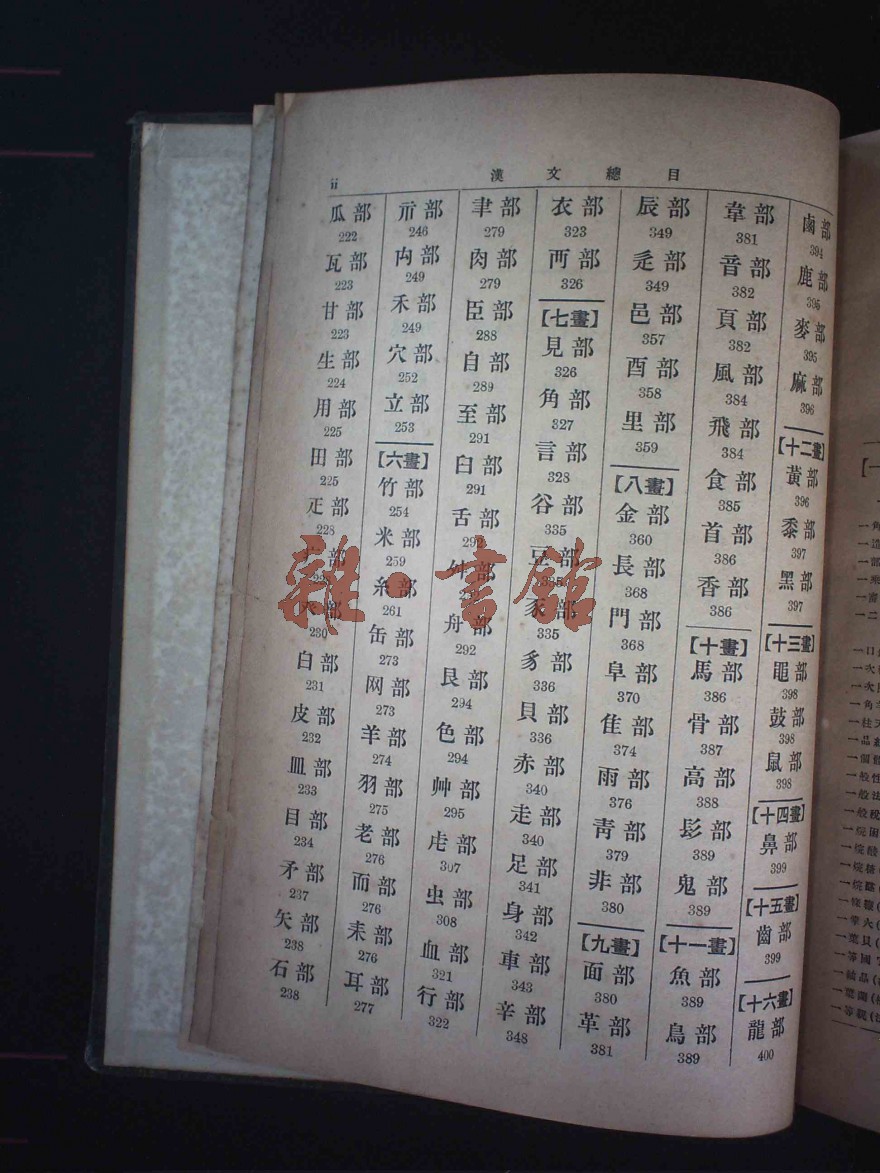 ii
漢文總目
瓜部
222
瓦部
223
甘部
223
生部
224
用部
225
田部
225
疋部
228
部
部
230
白部
231
皮部
232
皿部
233
目部
234
矛部
237
矢部
238
石部
238
示部
246
禸部
249
禾部
249
穴部
252
立部
253
【六畫】
竹部
254
米部
259
糸部
261
缶部
273
网部
273
羊部
274
羽部
275
老部
276
而部
276
耒部
276
耳部
277
聿部
279
肉部
279
臣部
288
自部
289
至部
291
臼部
291
舌部
292
舛部
舟部
292
艮部
294
色部
294
艸部
295
虍部
307
虫部
308
血部
321
行部
322
衣部
323
襾部
326
【七畫】
見部
326
角部
327
言部
328
谷部
335
豆部
335
豕部
335
豸部
336
貝部
336
赤部
340
走部
340
足部
341
身部
342
車部
343
辛部
348
辰部
349
辵部
349
邑部
357
酉部
358
里部
359
【八畫】
金部
360
長部
368
門部
368
阜部
370
隹部
374
雨部
376
靑部
379
非部
380
【九畫】
面部
380
革部
381
韋部
381
音部
382
頁部
382
風部
384
飛部
384
食部
385
首部
386
香部
386
【十畫】
馬部
386
骨部
387
高部
388
髟部
389
鬼部
389
【十一畫】
魚部
389
鳥部
389
鹵部
394
鹿部
395
麥部
395
麻部
396
【十二畫】
黃部
396
黍部
397
黑部
397
【十三畫】
黽部
398
鼓部
398
鼠部
398
【十四畫】
鼻部
399
【十五畫】
齒部
399
【十六畫】
龍部
400
雜·書館